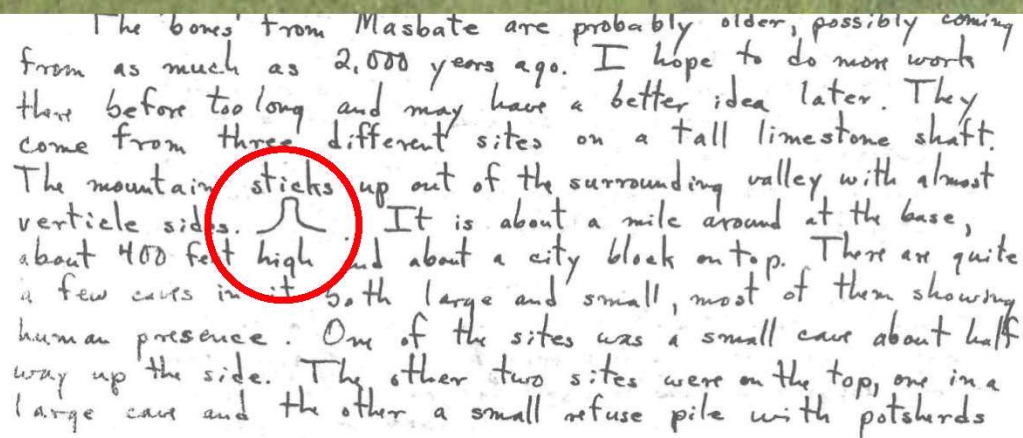 The 'bones' from Masbate are probably older, possibly coming
from as much as 2,000 years ago. I hope to do more work
there before too long and may have a better idea later. They
come from three different sites on a tall limestone shaft.
The mountain sticks up out of the surrounding valley with almost
verticle sides. It is about a mile around at the base,
about 400 feet high and about a city block on top. There are quite
a few caves in it both large and small, most of them showing
human presence. One of the sites was a small cave about half
way up the side. The other two sites were on the top, one in a
large cave and the other a small refuse pile with potsherds